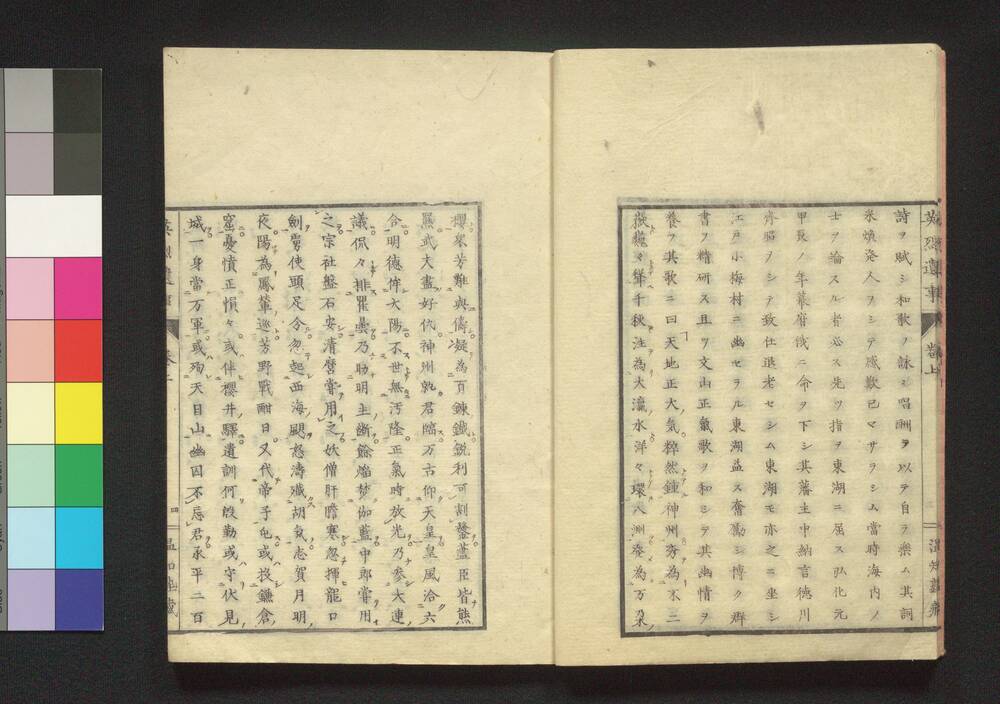 英烈遺事 巻上 温知叢齋
詩ヲ賦シ和歌ノ詠ミ唱酬ヲ以テ自ラ樂ム其詞
采煥発人ヲシテ感歎已マサラシム當時海内ノ
士ヲ論スル者必ス先ツ指ヲ東湖ニ屈ス弘化元
甲辰ノ年幕府俄ニ命ヲ下シ其藩主中納言徳川
齊昭ヲシテ致仕退老セシム東湖モ亦之ニ坐シ
江戸小梅村ニ幽セラル東湖益ス奮勵シ博ク群
書ヲ精研ス且ツ文山正氣歌ヲ和シテ其幽情ヲ
養フ其歌ニ曰天地正大氣粹然鍾神州秀為不二
嶽巍々聳千秋注為大瀛水洋々環八洲發為万朶
櫻衆芳難與儔凝為百錬鐵鋭利可割鍪藎臣皆熊
羆武夫盡好仇神州孰君臨万古仰天皇皇風洽六
合明徳侔大陽不世無汚隆正氣時放光乃參大連
議侃々排瞿曇乃助明主断燄焔焚伽藍中郎甞用
之宗社磐石安清麿甞用之妖僧肝膽寒忽揮龍口
劍虜使頭足分忽起西海颶怒濤殱胡氛志賀月明
夜陽為鳳輦巡芳野戰酣日又代帝子屯或投鎌倉
窟憂憤正愪々或伴櫻井驛遺訓何慇勤或守伏見
城一身當万軍或殉天目山幽囚不忘君承平二百